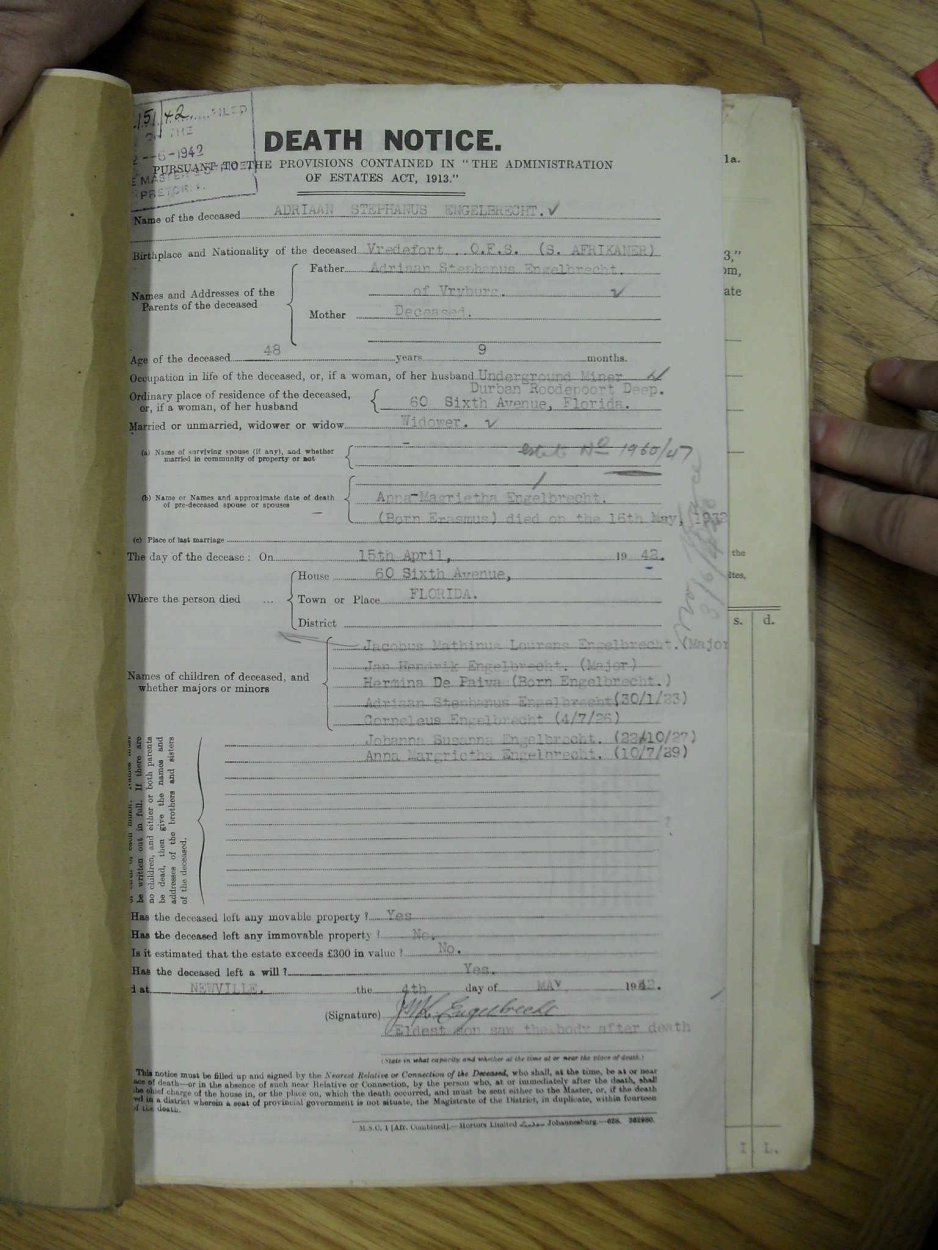 151/42
-6-1942
DEATH NOTICE.
PURSUANT TO THE PROVISIONS CONTAINED IN "THE ADMINISTRATION
OF ESTATES ACT, 1913."
Name of the deceased ADRIAAN STEPHANUS ENGELBRECHT. ✓
Birthplace and Nationality of the deceased Vredefort O.F.S. (S. AFRIKANER)
Names and Addresses of the Parents of the deceased
Father Adriaan Stephanus Engelbrecht.
of Vryburg. ✓
Mother Deceased.
Age of the deceased 48 years 9 months.
Occupation in life of the deceased, or, if a woman, of her husband Underground Miner
Durban Roodepoort Deep.
Ordinary place of residence of the deceased, or, if a woman, of her husband
60 Sixth Avenue, Florida.
Married or unmarried, widower or widow Widower. ✓
(a) Name of surviving spouse (if any), and whether married in community of property or not
estate No 1960/47
(b) Name or Names and approximate date of death of pre-deceased spouse or spouses
Anna Magrietha Engelbrecht.
(Born Erasmus) died on the 16th May,
(c) Place of last marriage
The day of the decease: On 15th April, 19 42.
Where the person died ...
House 60 Sixth Avenue,
Town or Place FLORIDA.
District
Names of children of deceased, and whether majors or minors
Jacobus Mathinus Lourens Engelbrecht. (Major
Jan Hendrik Engelbrecht. (Major)
Hermina De Paiva (Born Engelbrecht.)
Adriaan Stephanus Engelbrecht (30/1/23)
Corneleus Engelbrecht (4/7/26)
Johanna Susanna Engelbrecht. (22/10/27)
Anna Margrietha Engelbrecht. (10/7/29)
be written out in full. If there are
no children, and either or both parents
be dead, then give the names and
addresses of the brothers and sisters
of the deceased.
Has the deceased left any movable property? Yes
Has the deceased left any immovable property? No.
Is it estimated that the estate exceeds £300 in value? No.
Has the deceased left a will? Yes.
d at NEWVILLE. the 4th day of MAY 1942.
(Signature) JML Engelbrecht
Eldest son saw the body after death
(State in what capacity and whether at the time at or near the place of death.)
This notice must be filled up and signed by the Nearest Relative or Connection of the Deceased, who shall, at the time, be at or near
ace of death—or in the absence of such near Relative or Connection, by the person who, at or immediately after the death, shall
the chief charge of the house in, or the place on, which the death occurred, and must be sent either to the Master, or, if the death
ed in a district wherein a seat of provincial government is not situate, the Magistrate of the District, in duplicate, within fourteen
of the death.
M.S.C. 1 [Afr. Combined].—Hortors Limited Johannesburg.
1a.
3,"
om,
ate
the
ites,
s. d.
I. L.